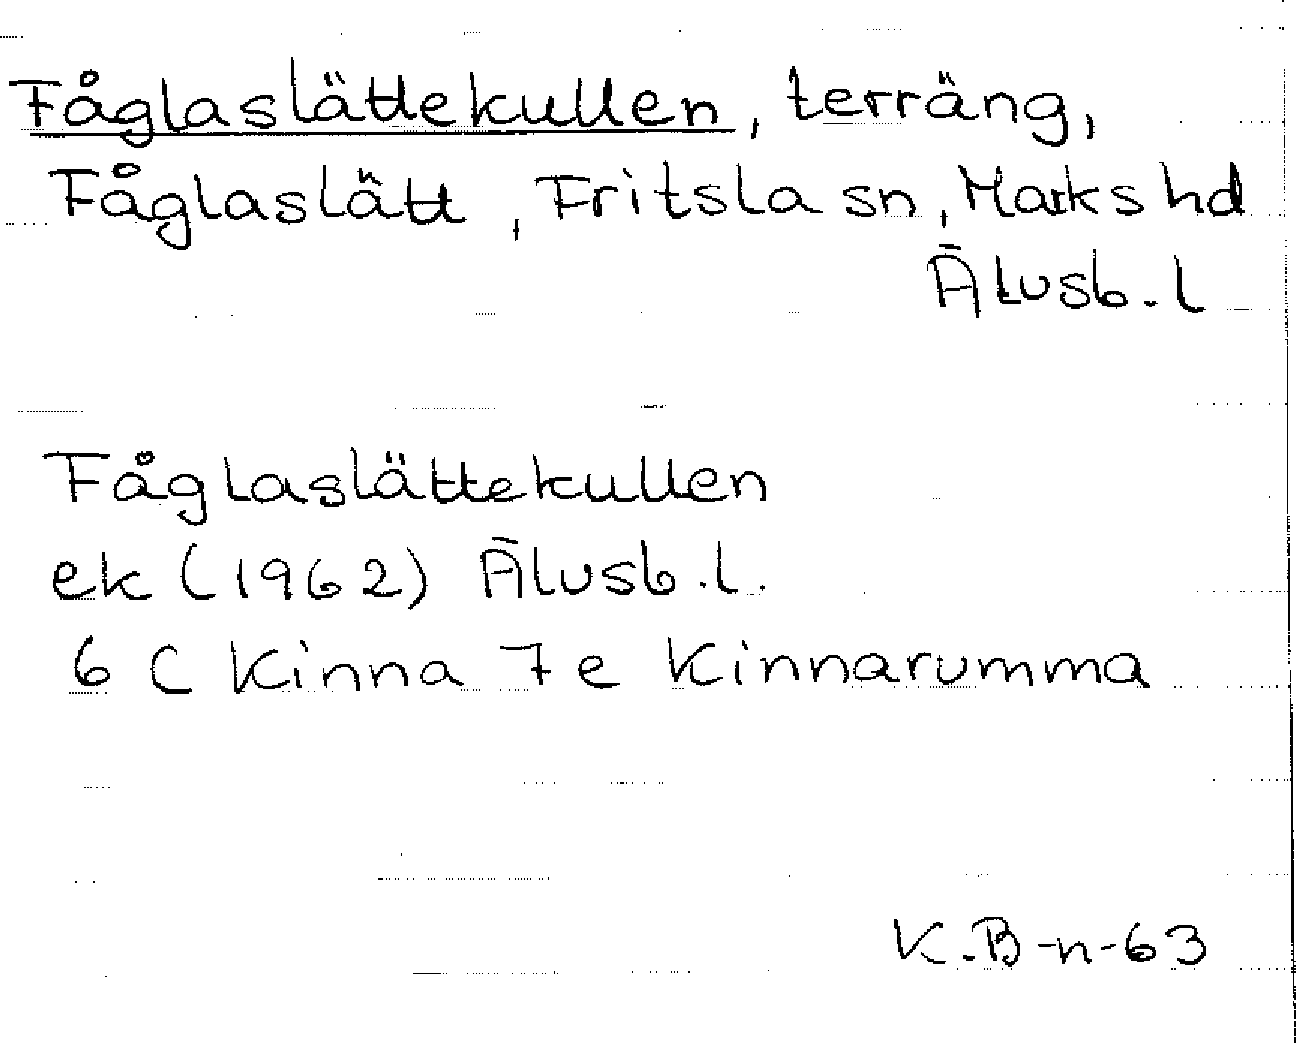 Fåglaslättekullen, terräng,
Fåglaslätt, Fritsla sn, Marks hd
Älvsb. l
Fåglaslättekullen
ek (1962) Älvsb. l.
6 C Kinna 7 e Kinnarumma
K.B-n-63